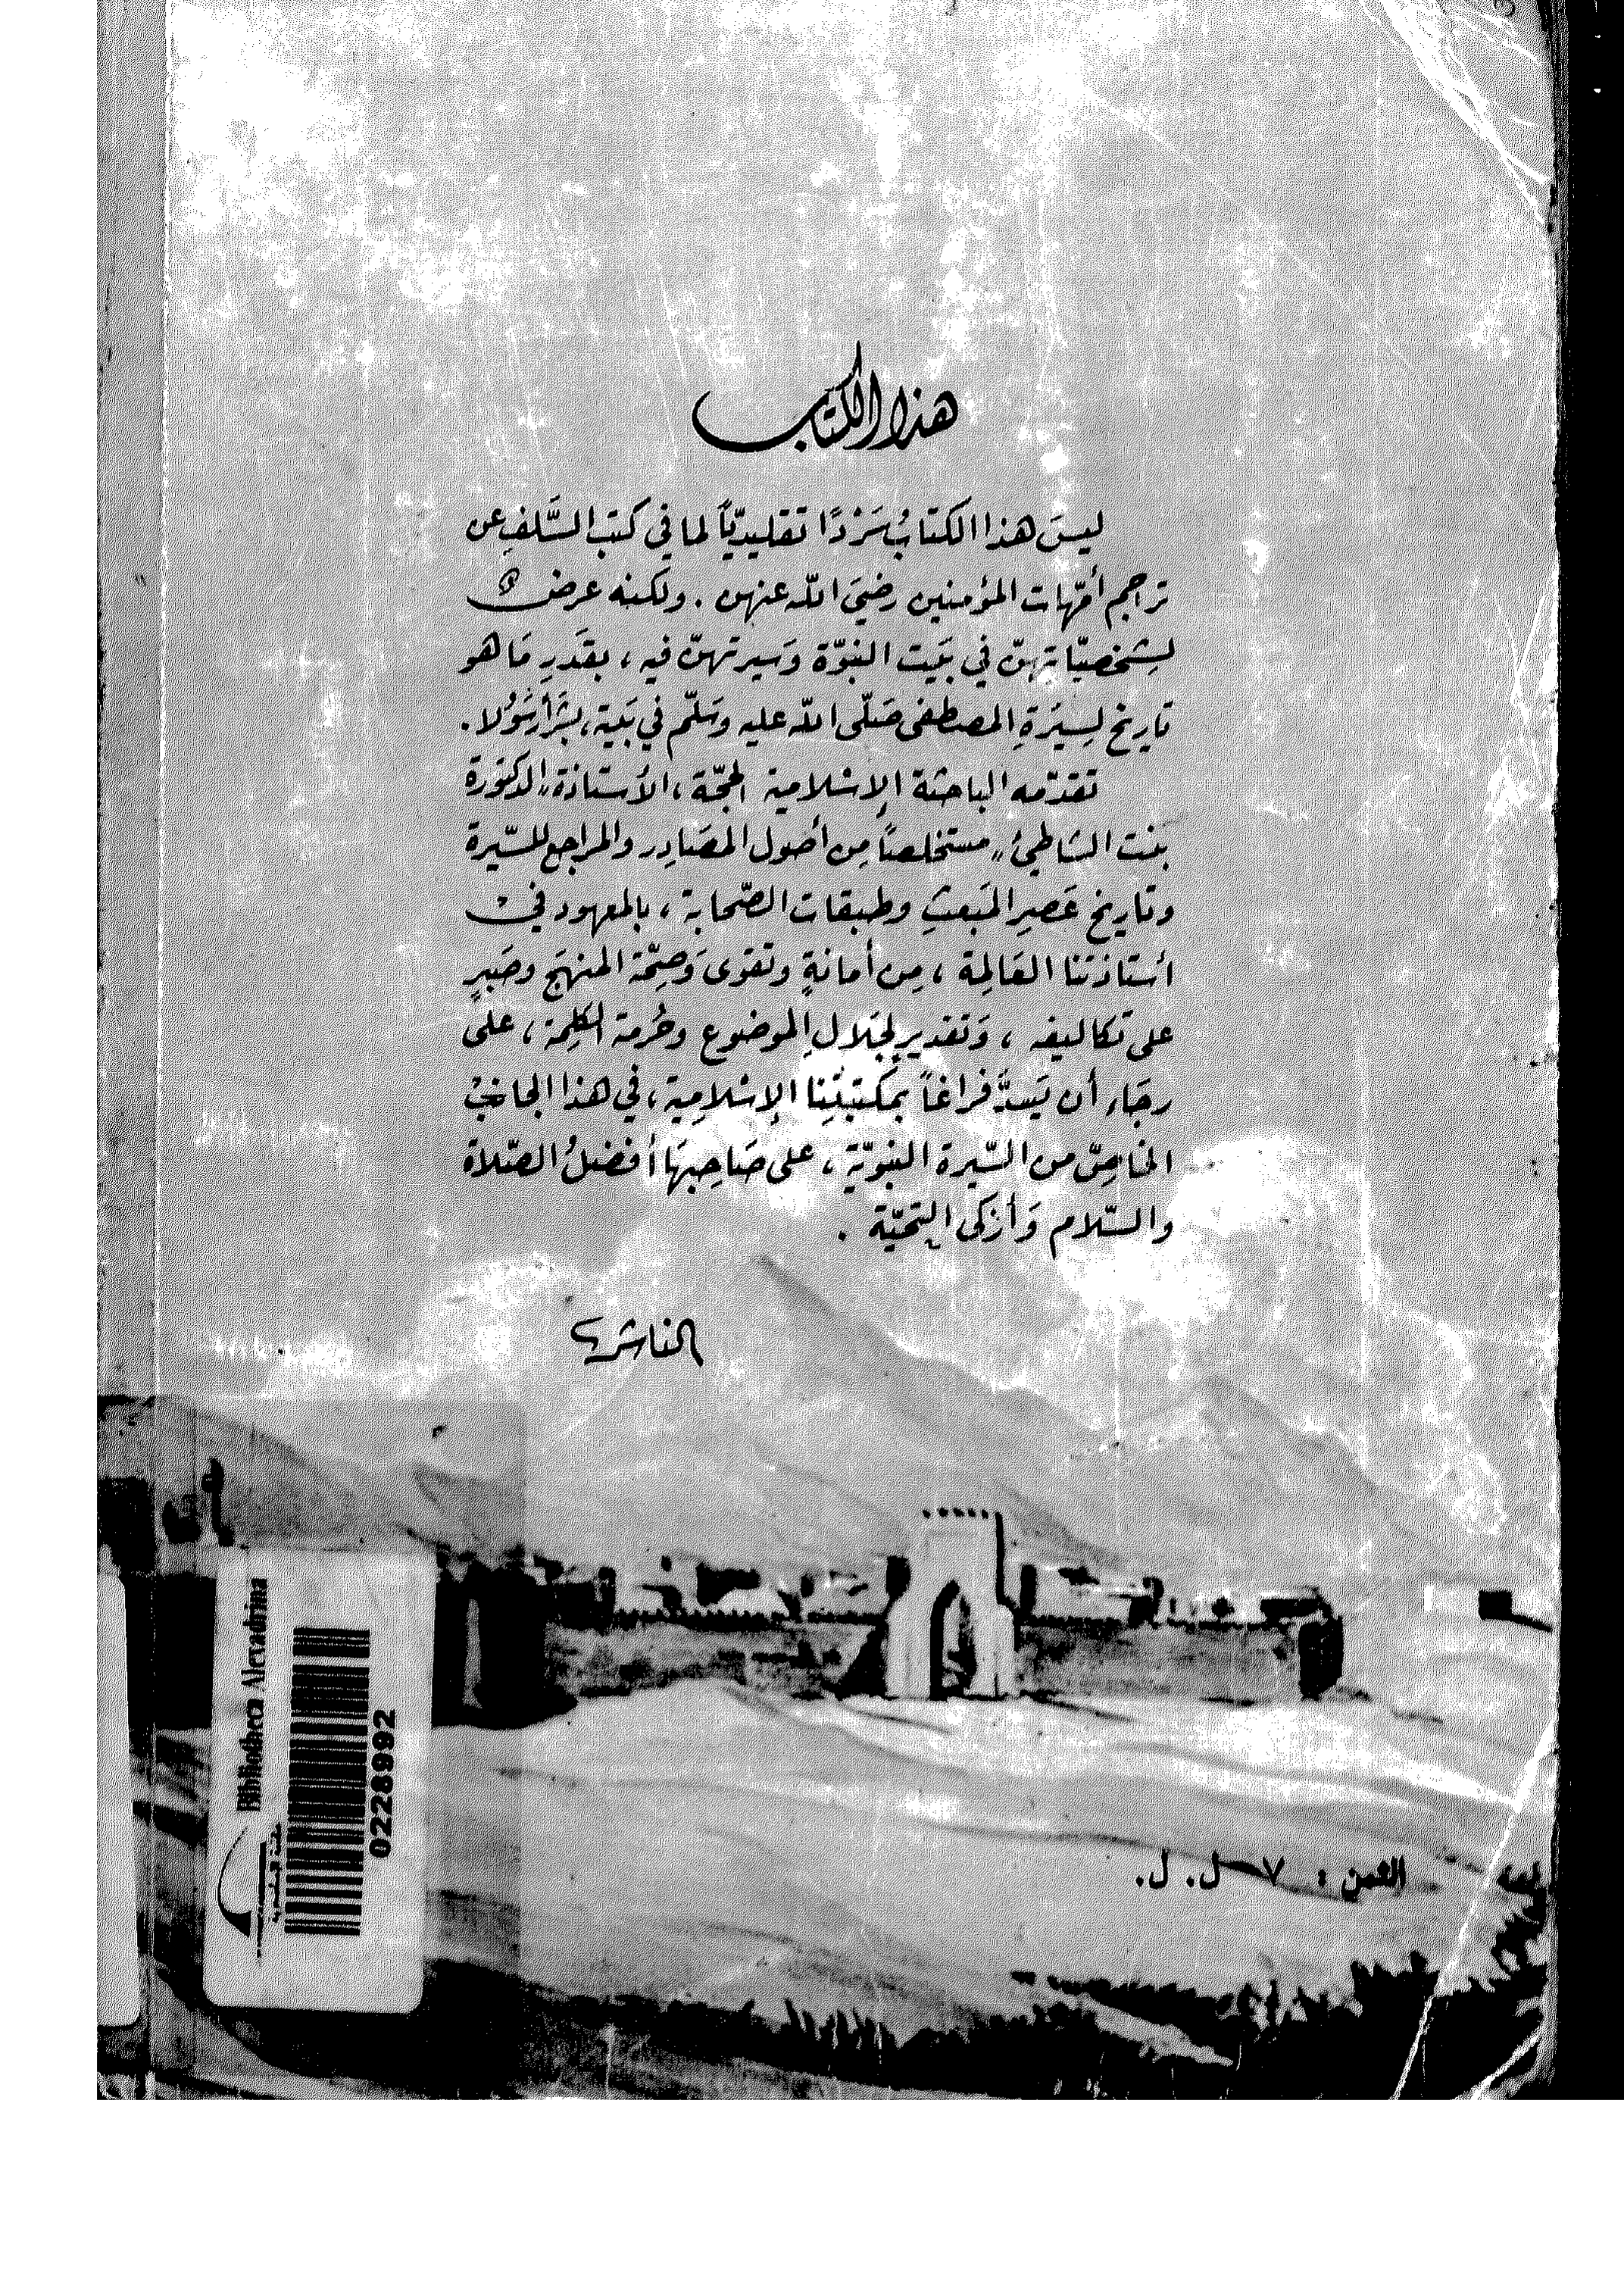 هذا الكتاب
ليسَ هذا الكتابُ سَرْدًا تقليديّاً لما في كتب السَّلفِ عن
تراجم أمّهات المؤمنين رضيَ الله عنهن . ولكنه عرض
لِشخصيّاتهنّ في بَيت النبوّة وَسيرتهنّ فيه ، بقَدَرِ مَا هو
تاريخ لِسِيرَةِ المصطفى صَلّى الله عليه وسَلّم في بَيته، بشَراً رَسُولا .
تقدّمه الباحثة الإسلامية الحجّة ، الأستاذة الدكتورة
بنت الشاطئ" مستخلصاً مِن أصول المصَادِر والمراجع للسّيرة
وتاريخ عَصرِ المَبعثِ وطبقات الصّحابة ، بالمعهود في
أستاذتنا العَالِمة ، مِن أمانةٍ وتقوى وَصِحّة المنهَج وصَبرٍ
على تكاليفه ، وَتقديرٍ لجَلالِ الموضوع وحُرمة الكلِمة ، على
رجَاء أن تَسدَّ فراغاً بمكتبتِنا الإسْلامِية ، في هذا الجانب
الخاصّ من السّيرة النبويّة ، على صَاحِبهَا أفضلُ الصّلاة
والسّلام وَأزكى التحيّة .
الناشر
Bibliotheca Alexandrina
0228992
الثمن : ٧ ل. ل.